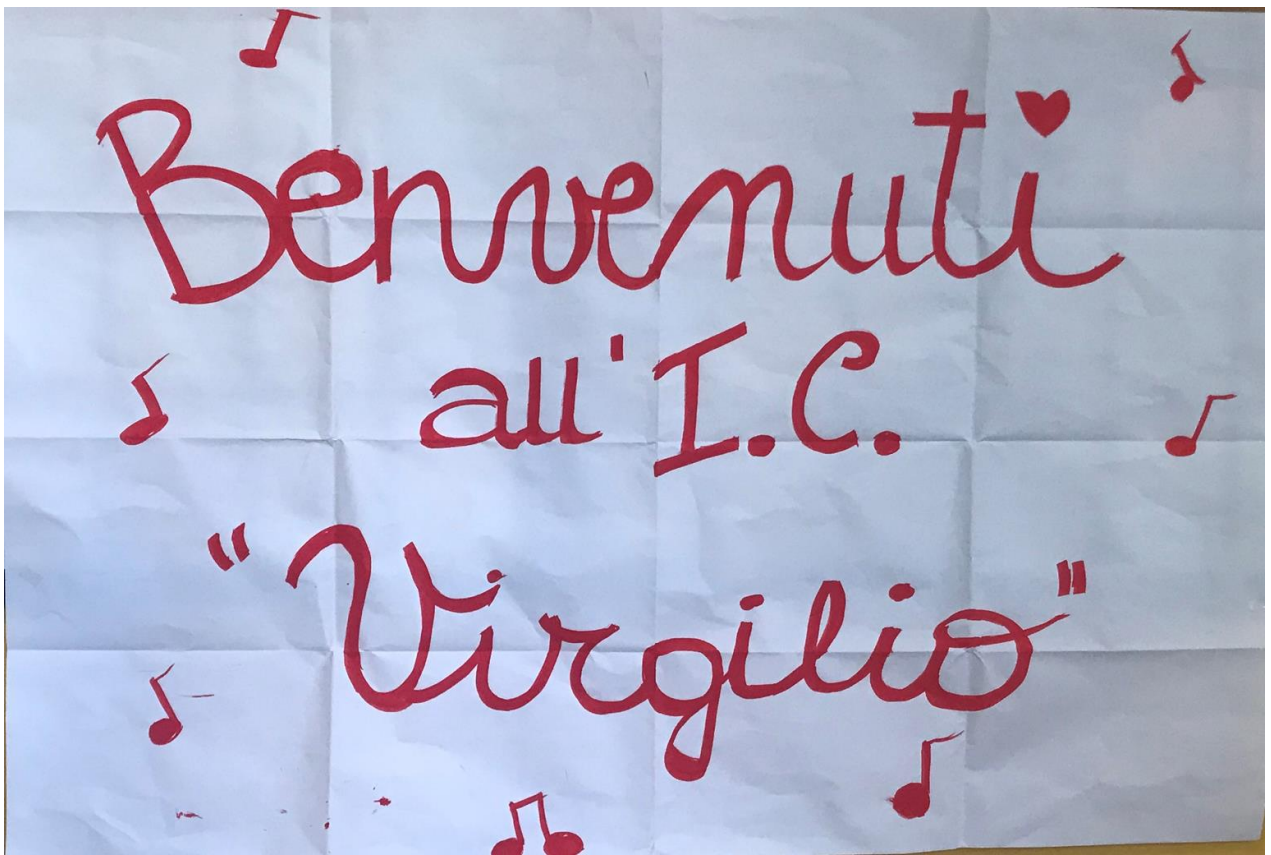 Benvenuti
all' I.C.
"Virgilio"